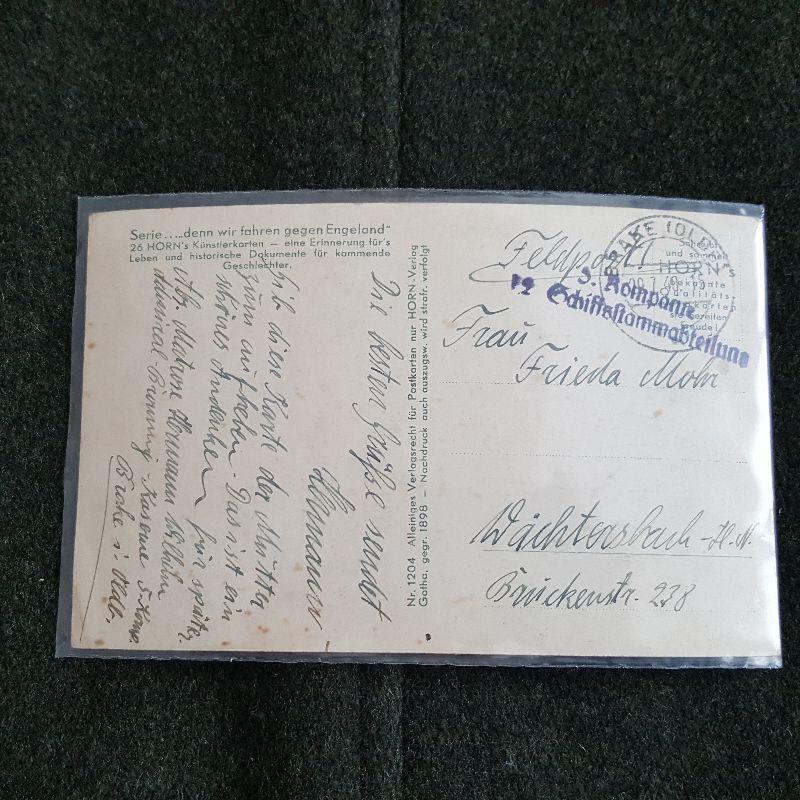 Serie .....„denn wir fahren gegen Engeland"
26 HORN's Künstlerkarten — eine Erinnerung für's
Leben und historische Dokumente für kommende
Geschlechter.
Die besten Grüße sendet
Hermann
Gib diese Karte der Mutter
zum aufheben. Das ist ein
schönes Andenken für später.
Abs. Matrose Hermann
Admiral-Brommy Kaserne 5.
Brake i. Oldb.
Nr. 1204 Alleiniges Verlagsrecht für Postkarten nur HORN-Verlag
Gotha, gegr. 1898 — Nachdruck auch auszugsw. wird strafr. verfolgt
Feldpost
BRAKE (OLDB)
Schreibt
und sammelt
HORN's
bekannte
Qualitäts-
karten
sie bereiten
Freude!
3. Kompanie
12 Schiffsstammabteilung
Frau
Frieda Mohr
Wächtersbach - H. N.
Brückenstr. 238